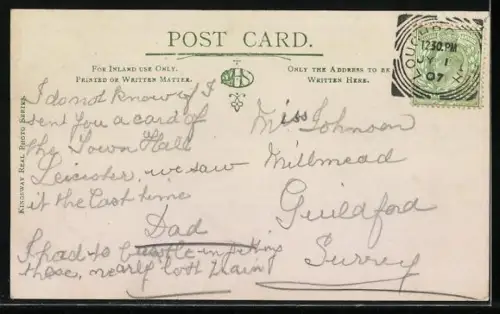 POST CARD.
FOR INLAND USE ONLY.
PRINTED OR WRITTEN MATTER.
ONLY THE ADDRESS TO BE
WRITTEN HERE.
KINGSWAY REAL PHOTO SERIES
12.30 PM
07
I do not know if I
sent you a card of
the Town Hall
Leicister, we saw
it the last time
Dad
I had to in
these, nearly lost train
Miss Johnson
Millmead
Guildford
Surrey